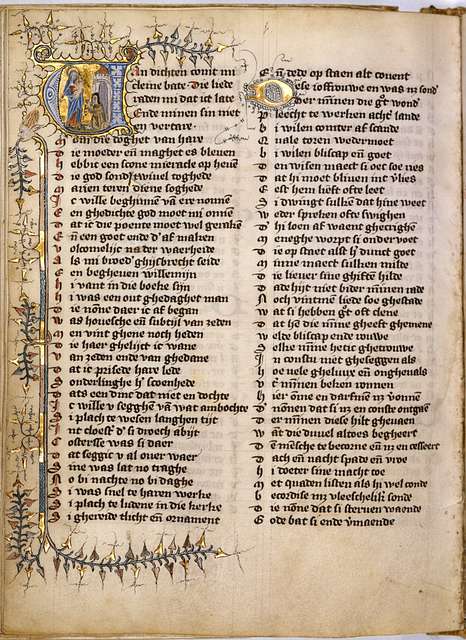 Van dichten comt mi
cleine bate Die liede
raden mi dat ict late
Ende minen sin niet
en vertare
Om die doghet van hare
Die moeder en̄ maghet es bleuen
Hebbic een scone mieracle op heuen
Die god sond' twiuel toghede
Marien teren diene soghede
Ic wille beghinnen vā ere nonnen
Een ghedichte god moet mi onnen
Dat ic die poente moet wel geraken
En̄ een goet ende d' af maken
Volcomelijc na der waerheide
Als mi broed' ghijsbrecht seide
Een begheuen willemijn
Hi vant in die boeke sijn
Hi was een out ghedaghet man
Die nōne daer ic af began
Was houesche en̄ subtijl van zeden
Men vint ghene noch heden
Die haer ghelijct ic wane
Van zeden ende van ghedane
Dat ic prisede hare lede
Sonderlinghe h' scoenhede
Dats een dinc dat niet en dochte
Ic wille v segghē vā wat ambochte
Si plach te wesen langhen tijt
Int cloest' d' si droech abijt
Costersse was si daer
Dat seggic v al ouer waer
Sine was lat no traghe
No bi nachte no bi daghe
Si was snel te haren werke
Si plach te ludene in die kerke
Si ghereide tlicht en̄ ornament
En̄ dede op staen alt couent
Dese ioffrouwe en was nz sond'
Der mīnen die gt' wond'
Pleecht te werken acht' lande
Bi wilen comter af scande
Quale toren wedermoet
Bi wilen bliscap en̄ goet
Den wisen maect si oec soe ries
Dat hi moet bliuen int v'lies
Eest hem lieft ofte leet
Si dwingt sulkē dat hine weet
Weder spreken ofte swighen
D' hi loen af waent ghecrighen
Meneghe worpt si onder voet
Die op staet alst h' dunct goet
Minne maect sulken milde
Die lieuer sine ghiften hilde
Dade hijt niet bider mīnen rade
Noch vintmen liede soe ghestade
Wat si hebben gt' oft clene
Dat hē die mīne gheeft ghemene
Welde bliscap ende rouwe
Selke mīne hetic ghetrouwe
In constu niet gheseggen als
Hoe vele gheluux en̄ ongheuals
Vt' mīnen beken ronnen
Hier ōme en darfmē nz v'onnen
D' nōnen dat si nz en conste ontgaē
Der mīnen diese hilt gheuaen
Wāt die duuel altoes begheert
Dē mēsche te becorne en̄ nz en cesseert
Dach en̄ nacht spade en̄ vroe
Hi doeter sine macht toe
Met quaden listen als hi wel conde
Becordise mz vleeschelik' sonde
Die nōne dat si steruen waende
Gode bat si ende v'maende